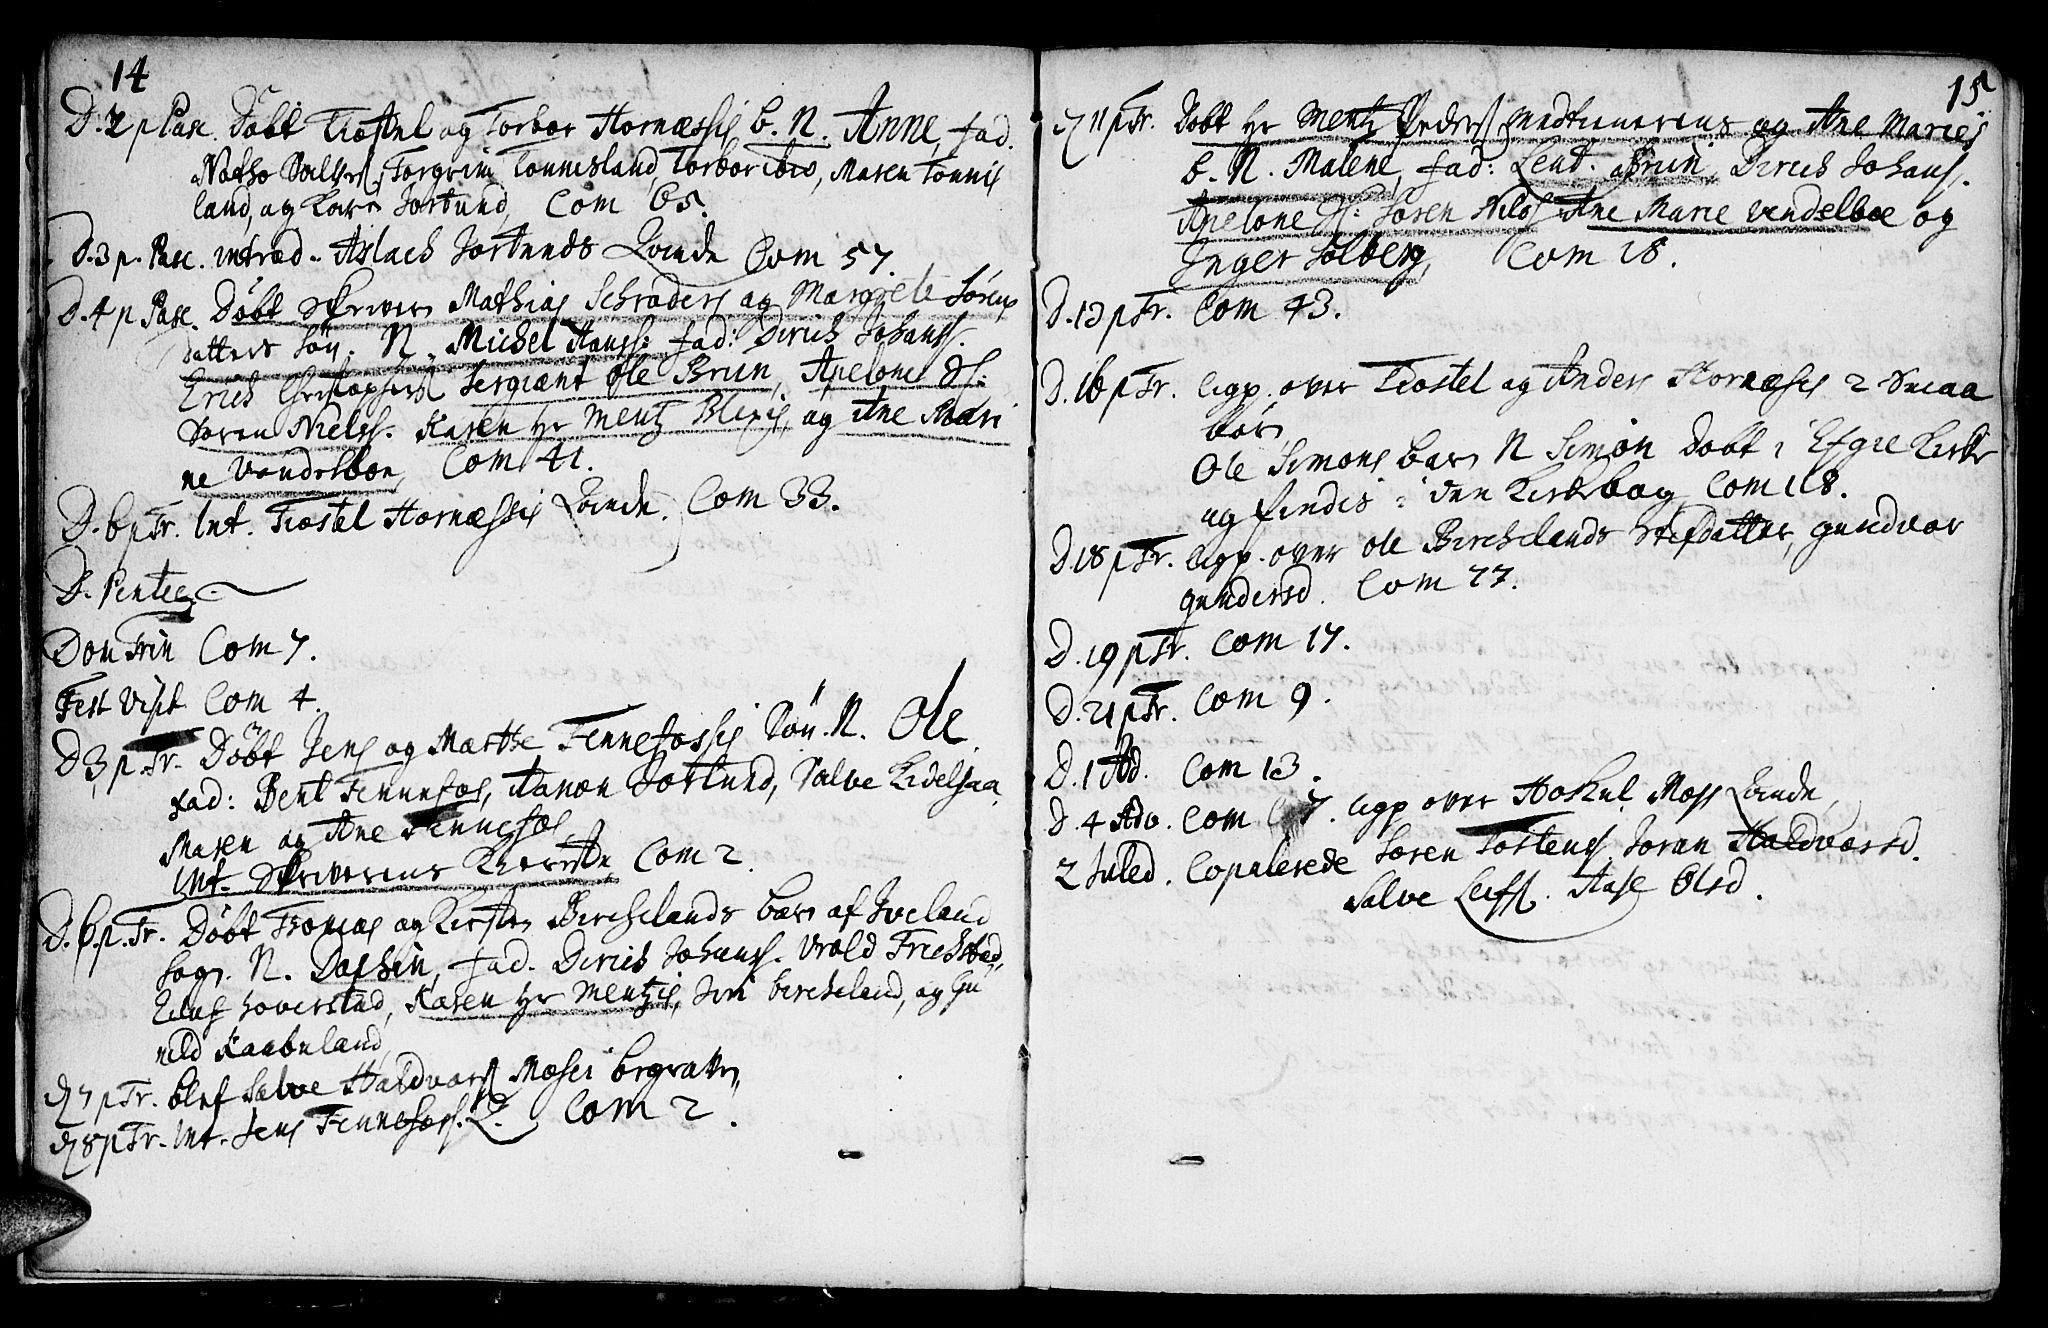 14
D. 2 p Pasc. Døbt Tiostel og Torbor Hornæssis b. N. Anne, fad.
Torgrim Tonnisland, Torbor ibid, Maren Tonnis
land, og Kari Jortund, Com 65.
D. 3 p. Pasc. introd. Aslach Jortunds Qvinde Com 57.
D. 4 p Pasc. Døbt Skriver Mathias Schrøders og Margrete Sørens
datters Søn. N. Michel Hans: fad: Dirich Johans.
Erich Christophers Sergiant Ole Brun, Apelone Sl:
Søren Niels. Karen Hr Mentz Blixis, og Ane Mari
ne Vendelboe, Com 41.
D. 6 p Tr. Int. Tiostel Hornæssis Qvinde. Com 33.
D. Pentec.
Dom Trin Com 7.
Fest Visit Com 4.
D 3, p. Tr. Døbt Jens og Marthe Fennefossis Søn. N. Ole
fad: Bent Fennefos, Aanon Jortund, Salve Kidelsaa,
Maren og Ane Fennefos,
Int. Skriverens Kierste, Com 2.
D. 6. p. Tr. Døbt Thomas og Kirsten Birchelands barn af Iveland
sogn. N. Dorthin, fad. Dirich Johans. Vrold Friestad,
Eluf Hoverstad, Karen Hr Mentzis, Siri Bircheland, og Gu
nild Kaabuland,
D 7 p Tr. blef Salve Haldvors Mosei begraven,
D 8 p Tr. Int. Jens Fennefoss. Q. Com 2.
15
D 11 p Tr. Døbt Hr Mentz Peders og Ane Maries
b. N. Malene, fad: Leut. Brun, Dirich Johans.
Apelone Sl: Søren Nils Ane Marie Vendelboe og
Inger Solberg, Com 18.
D. 13 p Tr. Com 43.
D. 16 p Tr. ligp. over Tiostel og Anders Hornæsis 2 Smaa
børn
Ole Simons barn N Simon Døbt i Efgie Kirke
og findis i den Kirkebog Com 118.
D. 18 p Tr. ligp. over Ole Birchelands Stifdatter, Gundvor
Gundersd. Com 77.
D. 19 p Tr. Com 17.
D. 21 p Tr. Com 9.
D. 1 Ad. Com 13.
D. 4 Adv. Com 7. ligp over Hoskul Mos Qvinde,
2 Juled. Copulerede Søren Tostens. Joran Haldvorsd.
Salve Leifs. Aase Olsd.